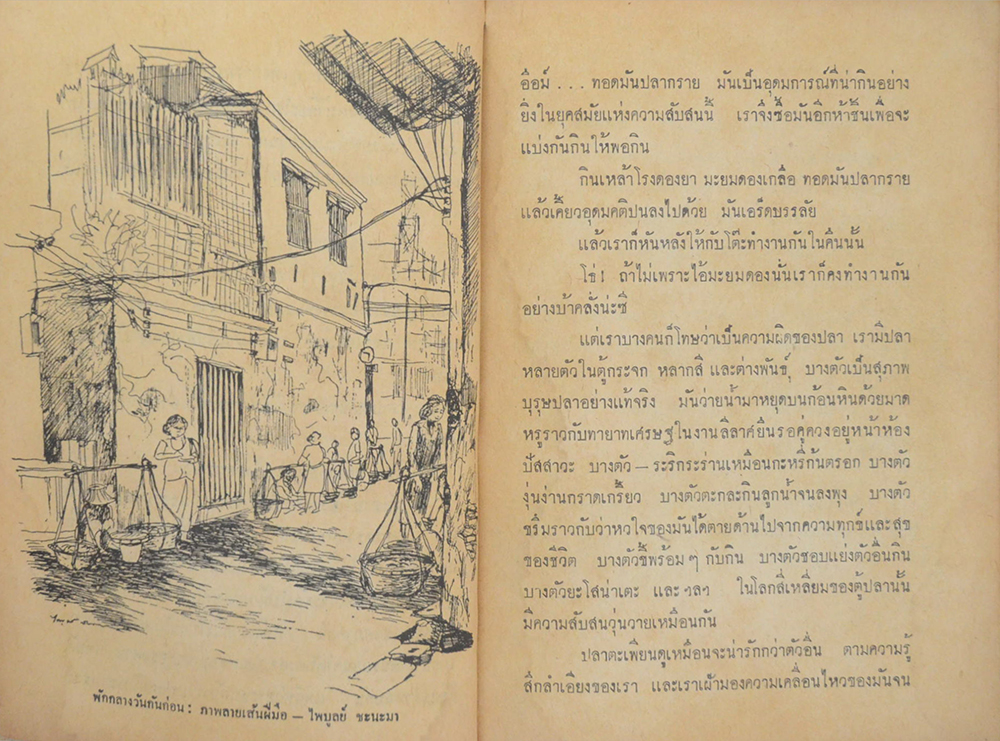 พักกลางวันกันก่อน : ภาพลายเส้นฝีมือ — ไพบูลย์ ชะนะมา
อื่อม์ . . . ทอดมันปลากราย มันเป็นอุดมการณ์ที่น่ากินอย่าง
ยิ่งในยุคสมัยแห่งความสับสนนี้ เราจึงซื้อมันอีกห้าชิ้นเพื่อจะ
แบ่งกันกินให้พอกิน
กินเหล้าโรงดองยา มะยมดองเกลือ ทอดมันปลากราย
แล้วเคี้ยวอุดมคติปนลงไปด้วย มันเอร็ดบรรลัย
แล้วเราก็หันหลังให้กับโต๊ะทำงานกันในคืนนั้น
โธ่! ถ้าไม่เพราะไอ้มะยมดองนั่นเราก็คงทำงานกัน
อย่างบ้าคลั่งน่ะซี
แต่เราบางคนก็โทษว่าเป็นความผิดของปลา เรามีปลา
หลายตัวในตู้กระจก หลากสี และต่างพันธุ์ บางตัวเป็นสุภาพ
บุรุษปลาอย่างแท้จริง มันว่ายน้ำมาหยุดบนก้อนหินด้วยมาด
หรูราวกับทายาทเศรษฐีในงานลีลาศยืนรอคู่ควงอยู่หน้าห้อง
ปัสสาวะ บางตัว — ระริกระร่านเหมือนกะหรี่ก้นตรอก บางตัว
งุ่นง่านกราดเกรี้ยว บางตัวตะกละกินลูกน้ำจนลงพุง บางตัว
ซรึมราวกับว่าหัวใจของมันได้ตายด้านไปจากความทุกข์และสุข
ของชีวิต บางตัวขี้พร้อม ๆ กับกิน บางตัวชอบแย่งตัวอื่นกิน
บางตัวยะโสน่าเตะ และ ฯลฯ ในโลกสี่เหลี่ยมของตู้ปลานั้น
มีความสับสนวุ่นวายเหมือนกัน
ปลาตะเพียนดูเหมือนจะน่ารักกว่าตัวอื่น ตามความรู้
สึกลำเอียงของเรา และเราเฝ้ามองความเคลื่อนไหวของมันจน